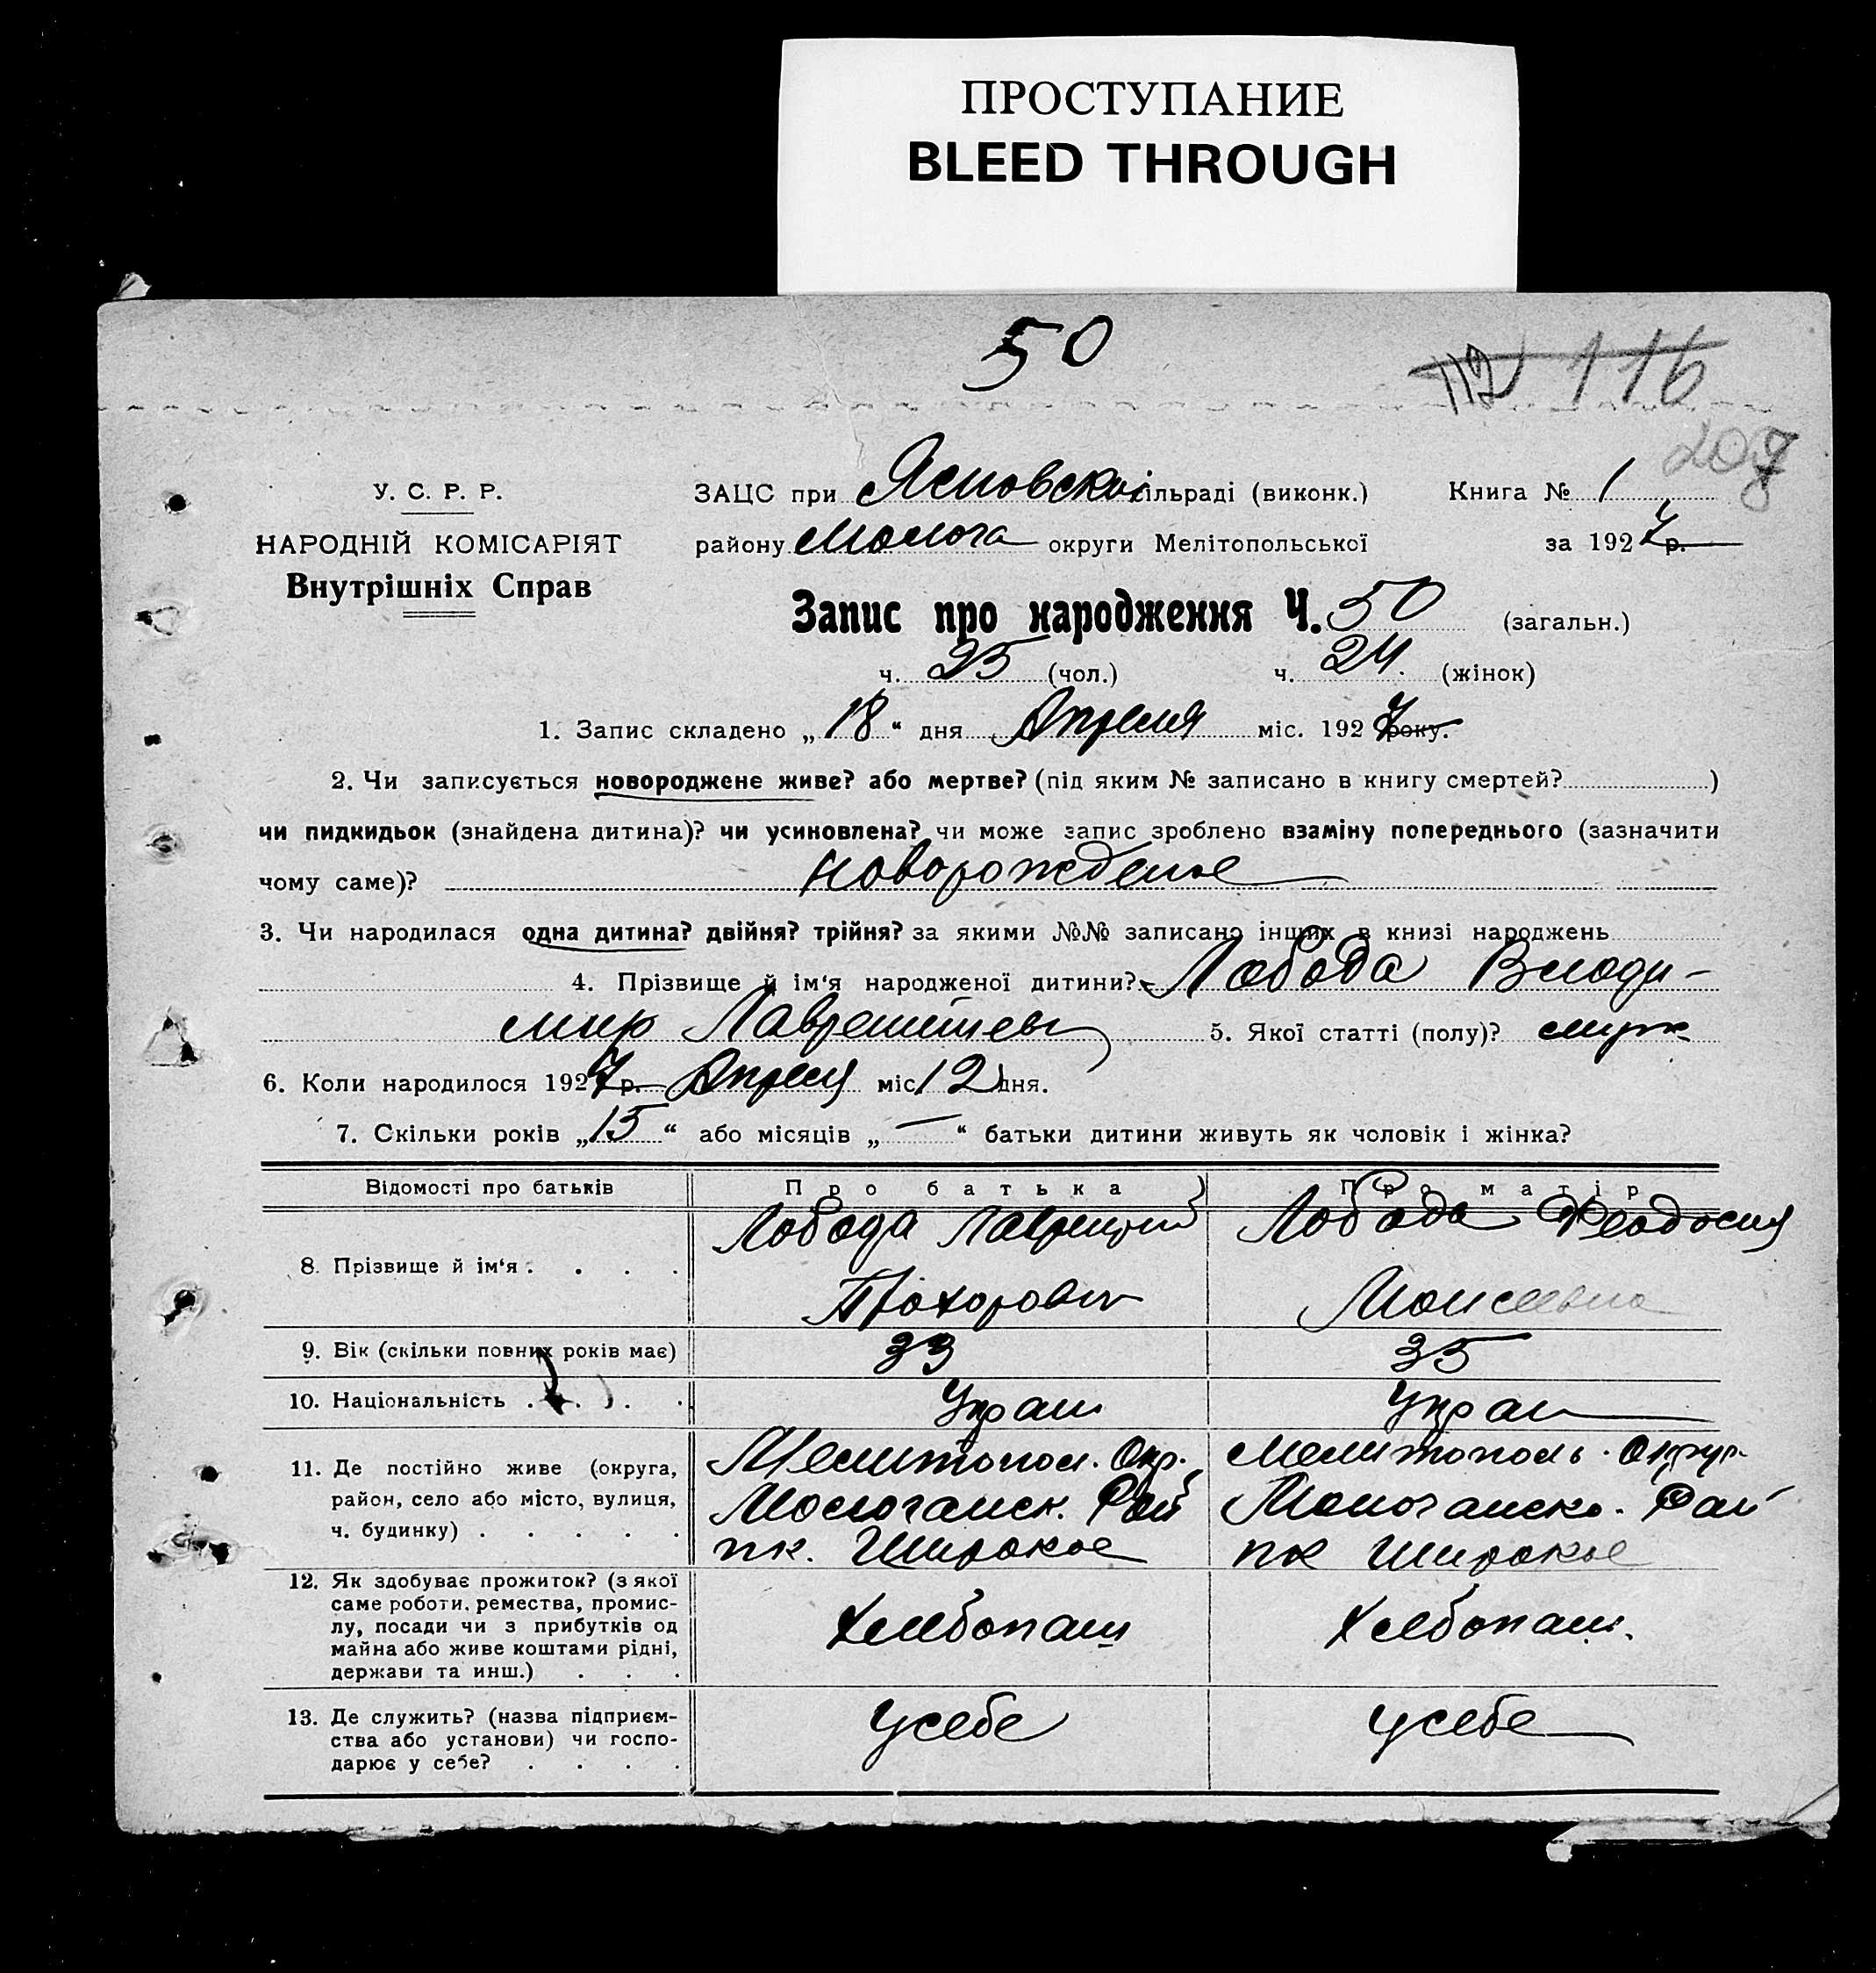 ПРОСТУПАНИЕ
BLEED THROUGH
50
112 116
207
У. С. Р. Р.
НАРОДНІЙ КОМІСАРІЯТ
Внутрішніх Справ
ЗАЦС при Ясновской сільраді (виконк.) Книга № 1
району Молога округи Мелітопольської за 1927 р.
Запис про народження Ч. 50 (загальн.)
ч. 25 (чол.) ч. 24. (жінок)
1. Запис складено „18“ дня Апреля міс. 1927 року.
2. Чи записується новороджене живе? або мертве? (під яким № записано в книгу смертей? )
чи пидкидьок (знайдена дитина)? чи усиновлена? чи може запис зроблено взаміну попереднього (зазначити
чому саме)? Новорожденое
3. Чи народилася одна дитина? двійня? трійня? за якими №№ записано інших в книзі народжень
4. Прізвище й ім‘я народженої дитини? Лобода Влади-
мир Лаврентиев 5. Якої статті (полу)? муж
6. Коли народилося 1927 р. Апреля міс 12 дня.
7. Скільки років „15“ або місяців „—“ батьки дитини живуть як чоловік і жінка?
Відомості про батьків Про батька Про матір
8. Прізвище й ім‘я . . . . Лобода Лаврентий Лобода Феодосия
Прохорович Моисеевна
9. Вік (скільки повних років має) 33 35
10. Національність . . . . Украин Украин
11. Де постійно живе (округа, Мелитопол. Окр. Мелитополь. Округ.
район, село або місто, вулиця, Молочанск. Рай Молочанско. Рай
ч. будинку) . . . . . пк. Широкое пк Широкое
12. Як здобуває прожиток? (з якої
саме роботи, ремества, промис-
лу, посади чи з прибутків од Хлебопаш Хлебопаш.
майна або живе коштами рідні,
держави та инш.) . . .
13. Де служить? (назва підприєм- У себе У себе
ства або установи) чи госпо-
дарює у себе? . . . .